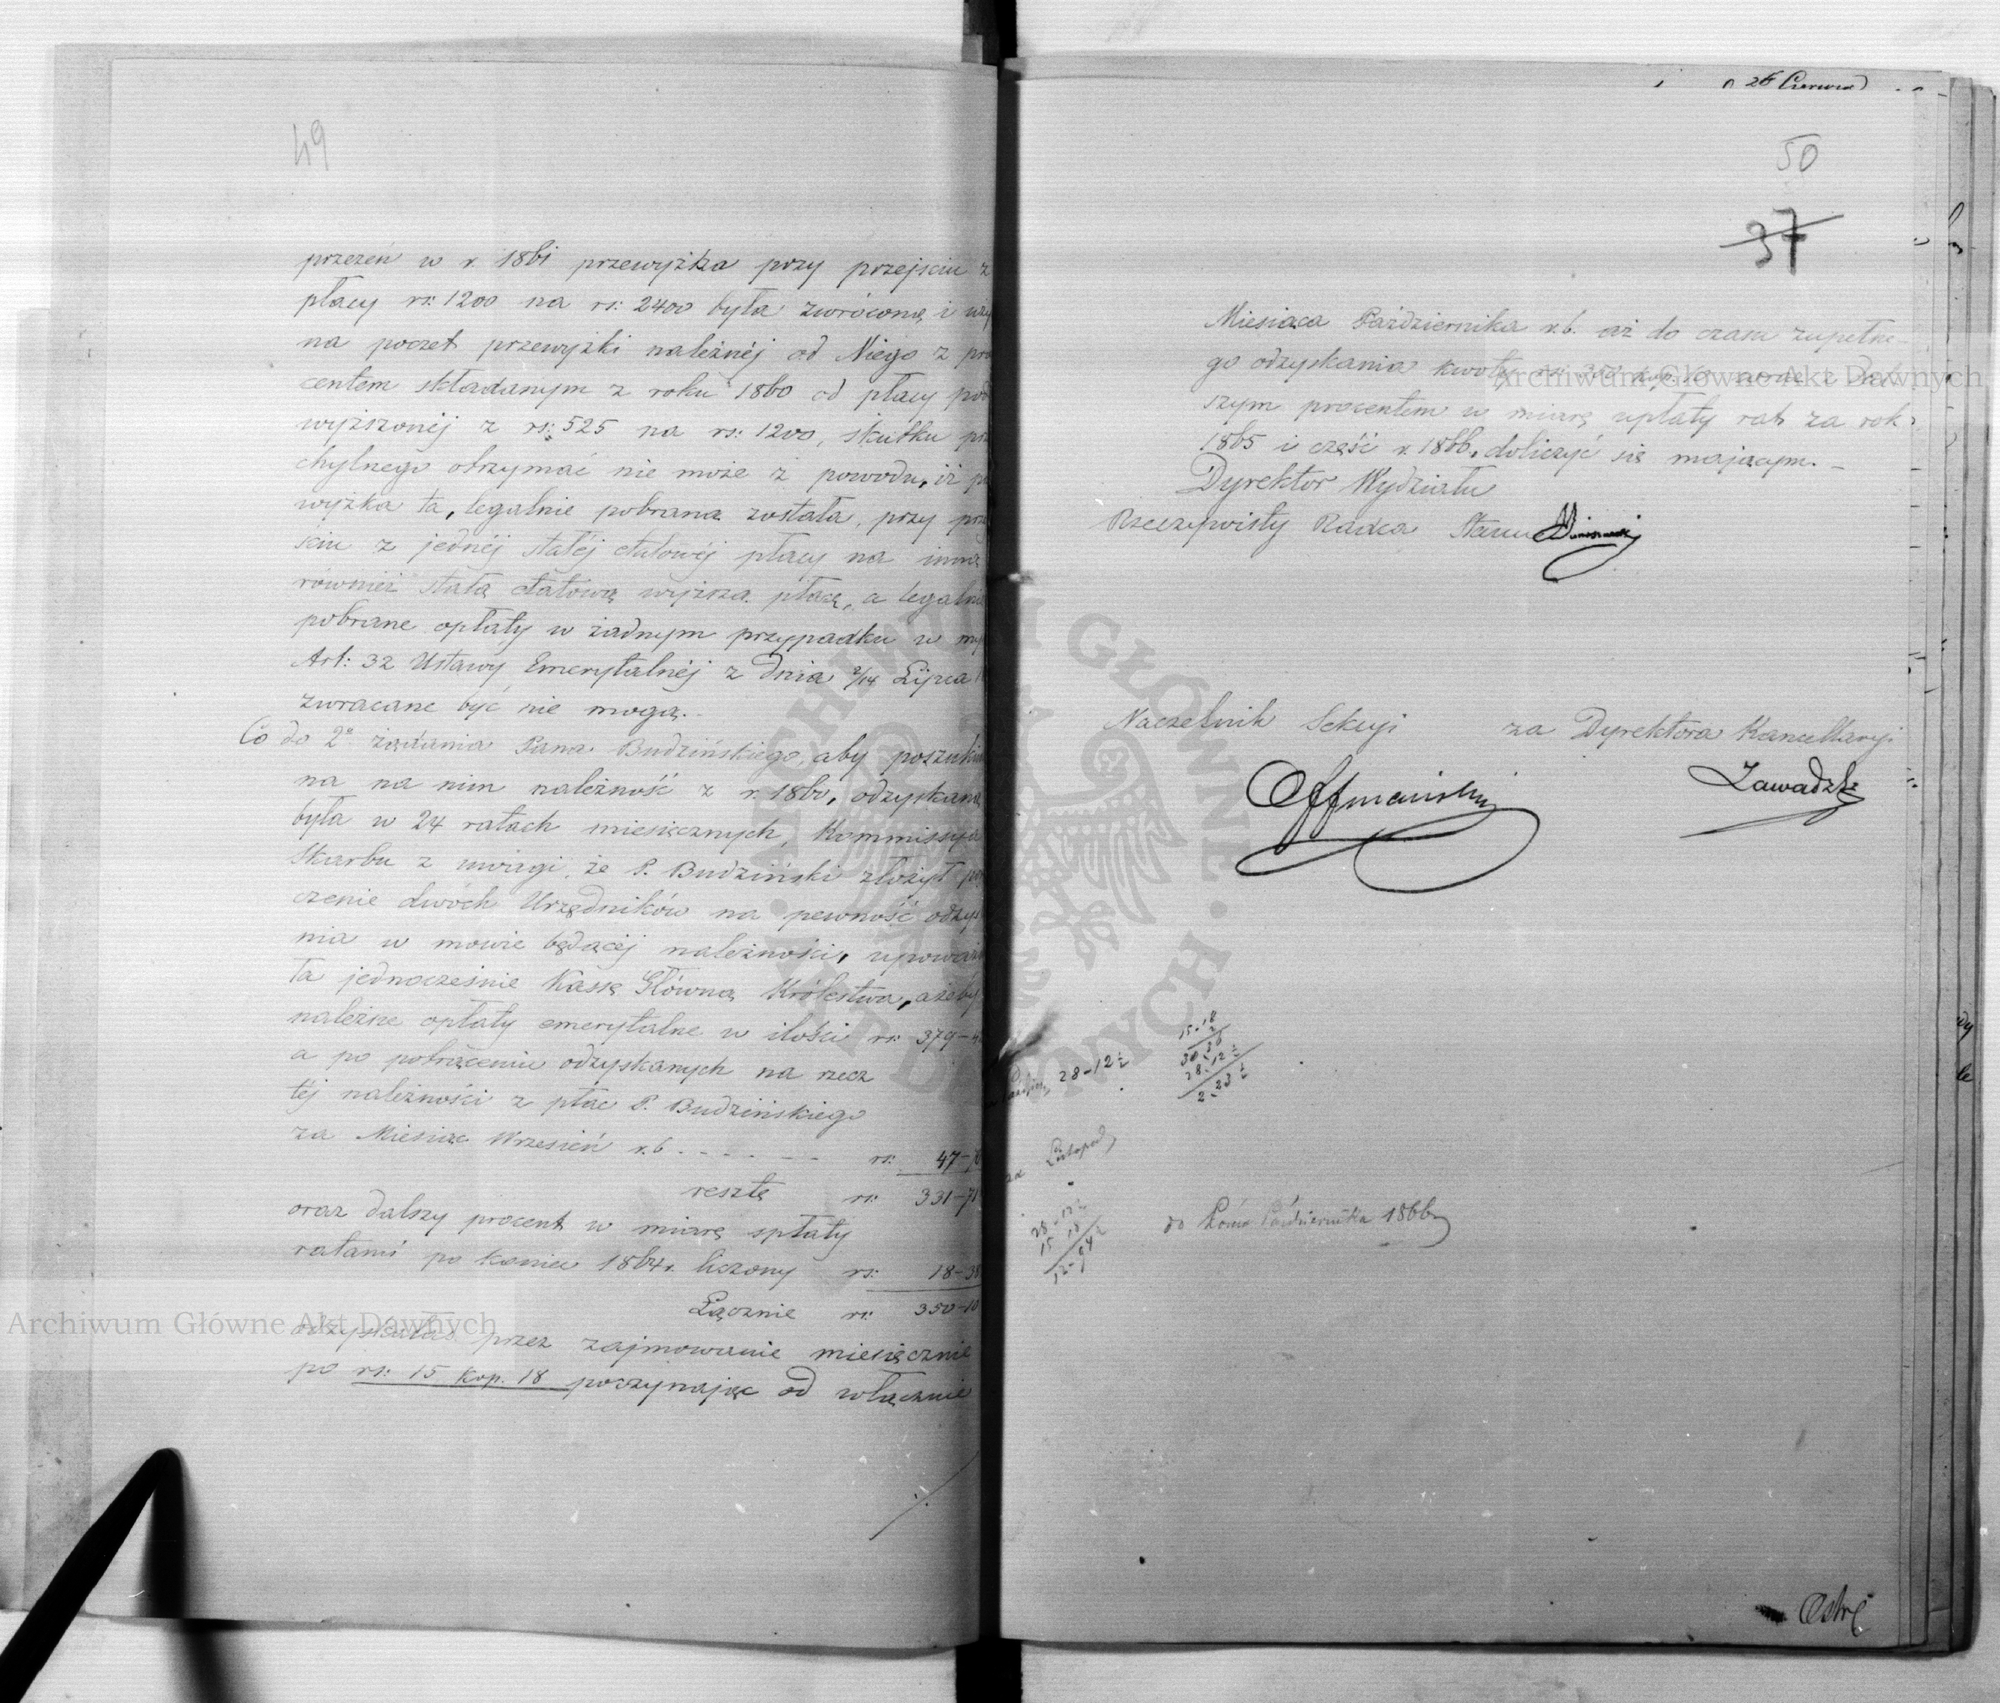 49
przezeń w r. 1861 przewyżka przy przejściu z
płacy rs: 1200 na rs: 2400 była zwróconą i
na poczet przewyżki należnéj od Niego z pro
centem składanym z roku 1860 od płacy pod
wyższonéj z rs: 525 na rs: 1200, skutku prz
chylnego otrzymać nie może z powodu, iż
wyżka ta, legalnie pobrana została, przy przej
ściu z jednéj stałéj etatowéj płacy na inną
również stałą etatową wyższą płacę, a legalnie
pobrane opłaty w żadnym przypadku w myśl
Art: 32 Ustawy Emerytalnéj z dnia 2/14 Lipca
zwracane być nie mogą.
Co do 2º żądania Pana Budzińskiego, aby poszukiwa
na na nim należność z r. 1860, odzyskaną
była w 24 ratach miesięcznych, Kommissya
Skarbu z uwagi, że P. Budziński złożył porę
czenie dwóch Urzędników na pewność odzys
nia w mowie będącéj należności, upoważni
ła jednocześnie Kassę Główną Królestwa, ażeby
należne opłaty emerytalne w ilości rs: 379-4
a po potrąceniu odzyskanych na rzecz
téj należności z płac P. Budzińskiego
za Miesiąc Wrzesień r.b. - - - - - rs: 47-7
resztę rs: 331-71
oraz dalszy procent w miarę spłaty
ratami po koniec 1864 r. liczony rs: 18-38
Łącznie rs: 350-10
odzyskałas przez zajmowanie miesięcznie
po rs: 15 kop. 18 poczynając od włącznie
./.
26 Czerwca
50
37
Miesiąca Października r.b. aż do czasu zupełne-
go odzyskania kwoty rs: 350 kop. 10 wraz z dal
szym procentem w miarę upłaty rat za rok
1865 i część r. 1866, doliczyć się mającym. -
Dyrektor Wydziału
Rzeczywisty Radca Stanu
Naczelnik Sekcyi za Dyrektora Kancellaryi
Offmański Zawadzki
28-12½
15-18
2
30-36
28-12½
2-23½
za Listopad
28-12½
15 18
12-94½
do końca Października 1866
Archiwum Główne Akt Dawnych
Archiwum Główne Akt Dawnych
ARCHIWUM GŁÓWNE AKT DAWNYCH